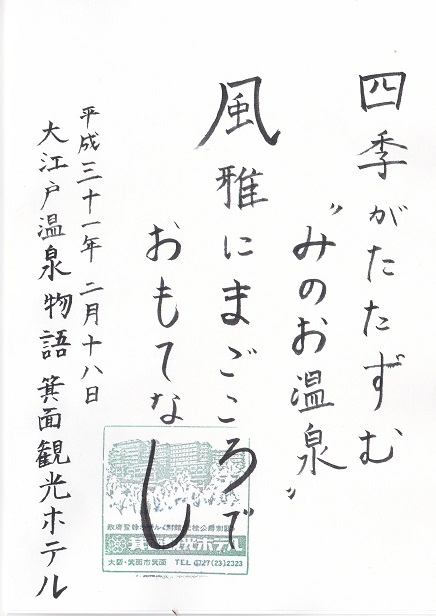 四季がたたずむ
〝みのお温泉〟
風雅にまごころで
おもてなし
平成三十一年二月十八日
大江戸温泉物語箕面観光ホテル
箕面観光ホテル
大阪・箕面市箕面 TEL 0727(23)2323